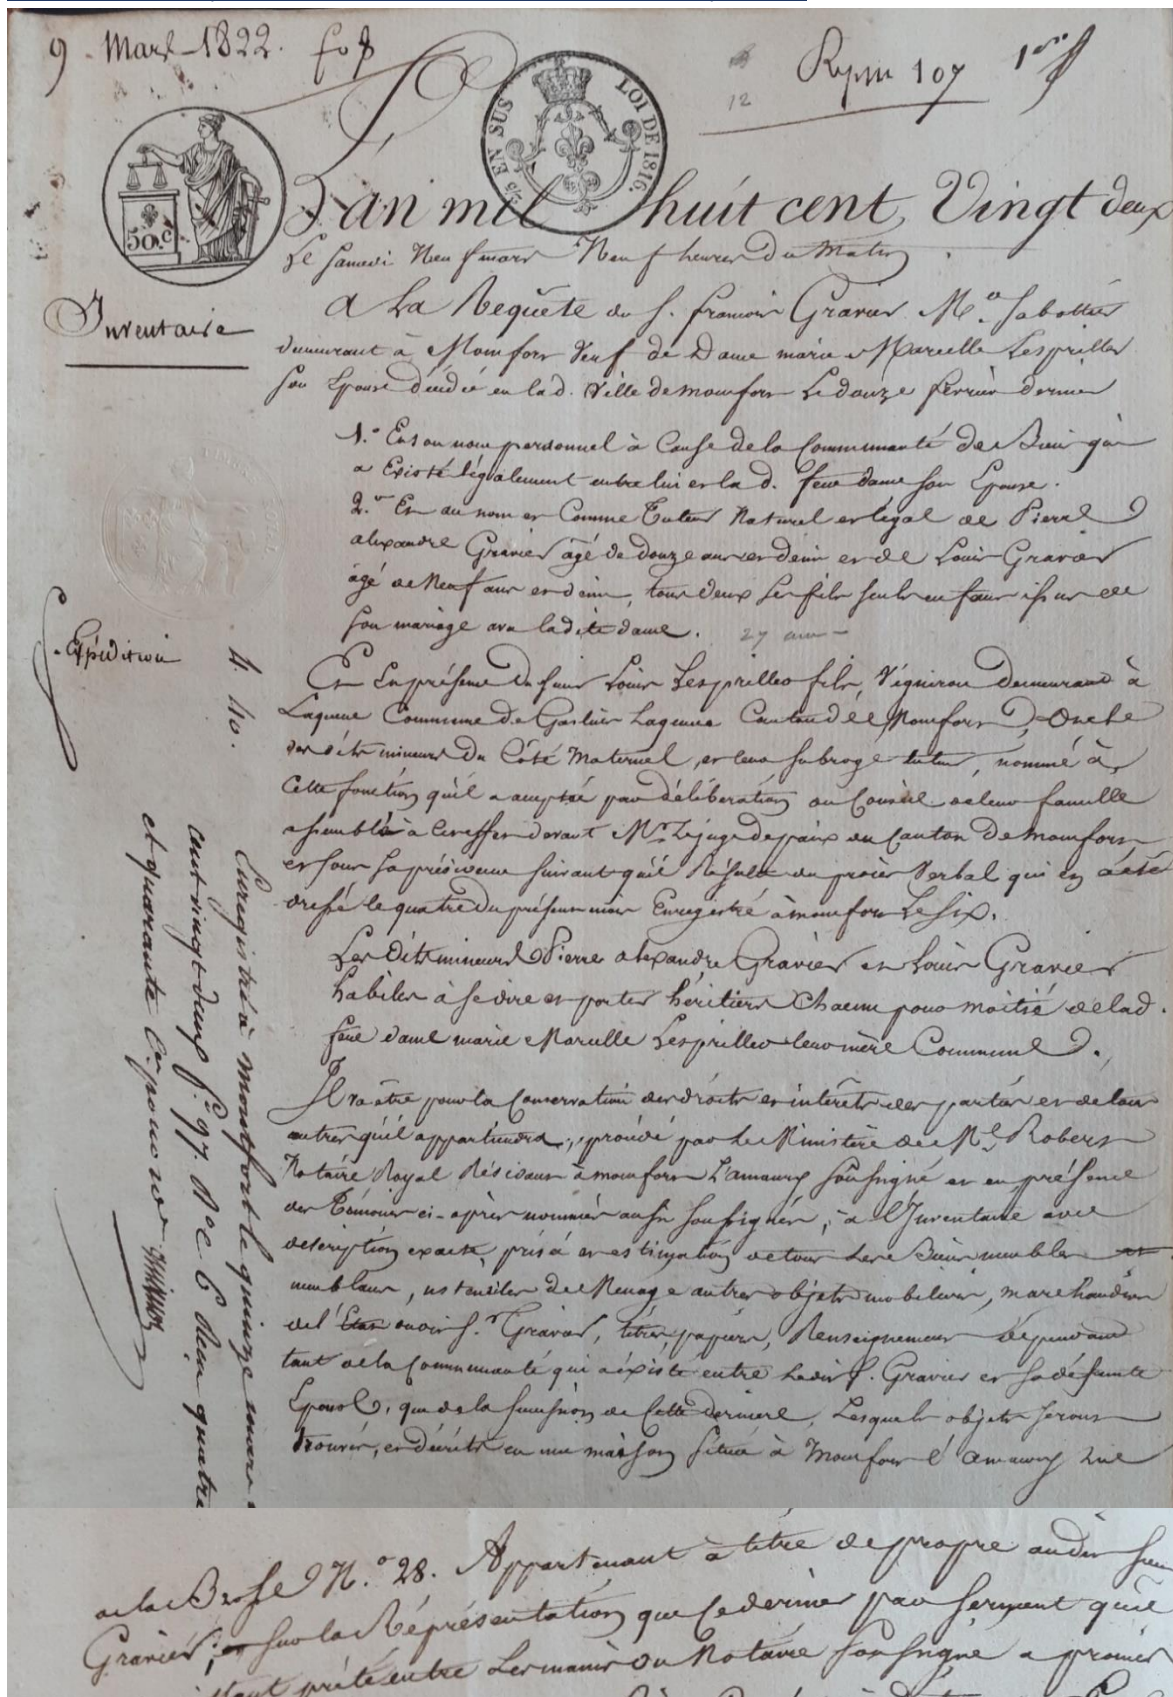 9 Mars 1822. fo 8
Repre 107
12
5/5 EN SUS LOI DE 1816.
50.c
L'an mil huit cent Vingt deux
Le Samedi Neuf mars Neuf heures du Matin
Inventaire
A La Requête du S. francois Gravier M.d Sabottier
demeurant à Monfort Veuf de Dame marie Marcelle Lesprillier
Son Epouse décédée en lad. Ville de Monfort Le douze fevrier dernier
1.o En son nom personnel à Cause de la Communauté de Biens qui
a Existé légalement entre lui et la d. feue dame son Epouse.
2.o Et au nom et Comme Tuteur Naturel et légal de Pierre
alexandre Gravier âgé de douze ans et demi et de Louis Gravier
âgé de Neuf ans et demi, tous deux ses fils seuls enfans issus de
son mariage avec ladite dame. 27 ans
Expédition
Et En présence du sieur Louis Lesprillier fils, Vigneron demeurant à
Laqueue Commune de Galluis Laqueue Canton de Monfort, Oncle
desdits mineurs du Côté Maternel, et leur subrogé tuteur, nommé à
Cette fonction qu'il a acceptée par délibération du Conseil de leur famille
assemblé à cet effet devant Mr. Le juge de paix du Canton de Monfort
et sous sa présidence suivant qu'il Résulte du procès Verbal qui en a été
dressé le quatre du présent mois Enregistré à monfort Le Six.
Les dits mineurs Pierre alexandre Gravier et Louis Gravier
habiles à se dire et porter héritiers Chacun pour moitié de lad.
feue dame marie Marcelle Lesprillier leur mère Commune.
Il va être pour la Conservation des droits et intérêts des parties et de tous
autres qu'il appartiendra, procédé par le Ministère de Me. Robert
Notaire Royal Résidant à monfort L'amaury soussigné et en présence
des Témoins ci-après nommés aussi soussignés, à l'Inventaire avec
description exacte, prisée et estimation de tous les Biens meubles
meublans, ustensiles de Menage autres objets mobiliers, marchandises
de l'Etat dudit S.r Gravier, titres papiers, Renseignemens dépendans
tant de la Communauté qui a éxisté entre ledit S. Gravier et sa défunte
Epouse, que de la succession de Cette dernière, Lesquels objets seront
trouvés, et décrits en une maison située à Monfort l'amaury rue
4. 40.
Enregistré à Montfort le quinze mars
cent vingt deux f.o 97. R.o C. 6 Reçu quatre
et quarante C.es pour
de la Brosse N.o 28. Appartenant à titre de propre audit sieur
Gravier, sur la Réprésentation que ce dernier par serment qu'il
prêté entre Les mains du Notaire soussigné a promis